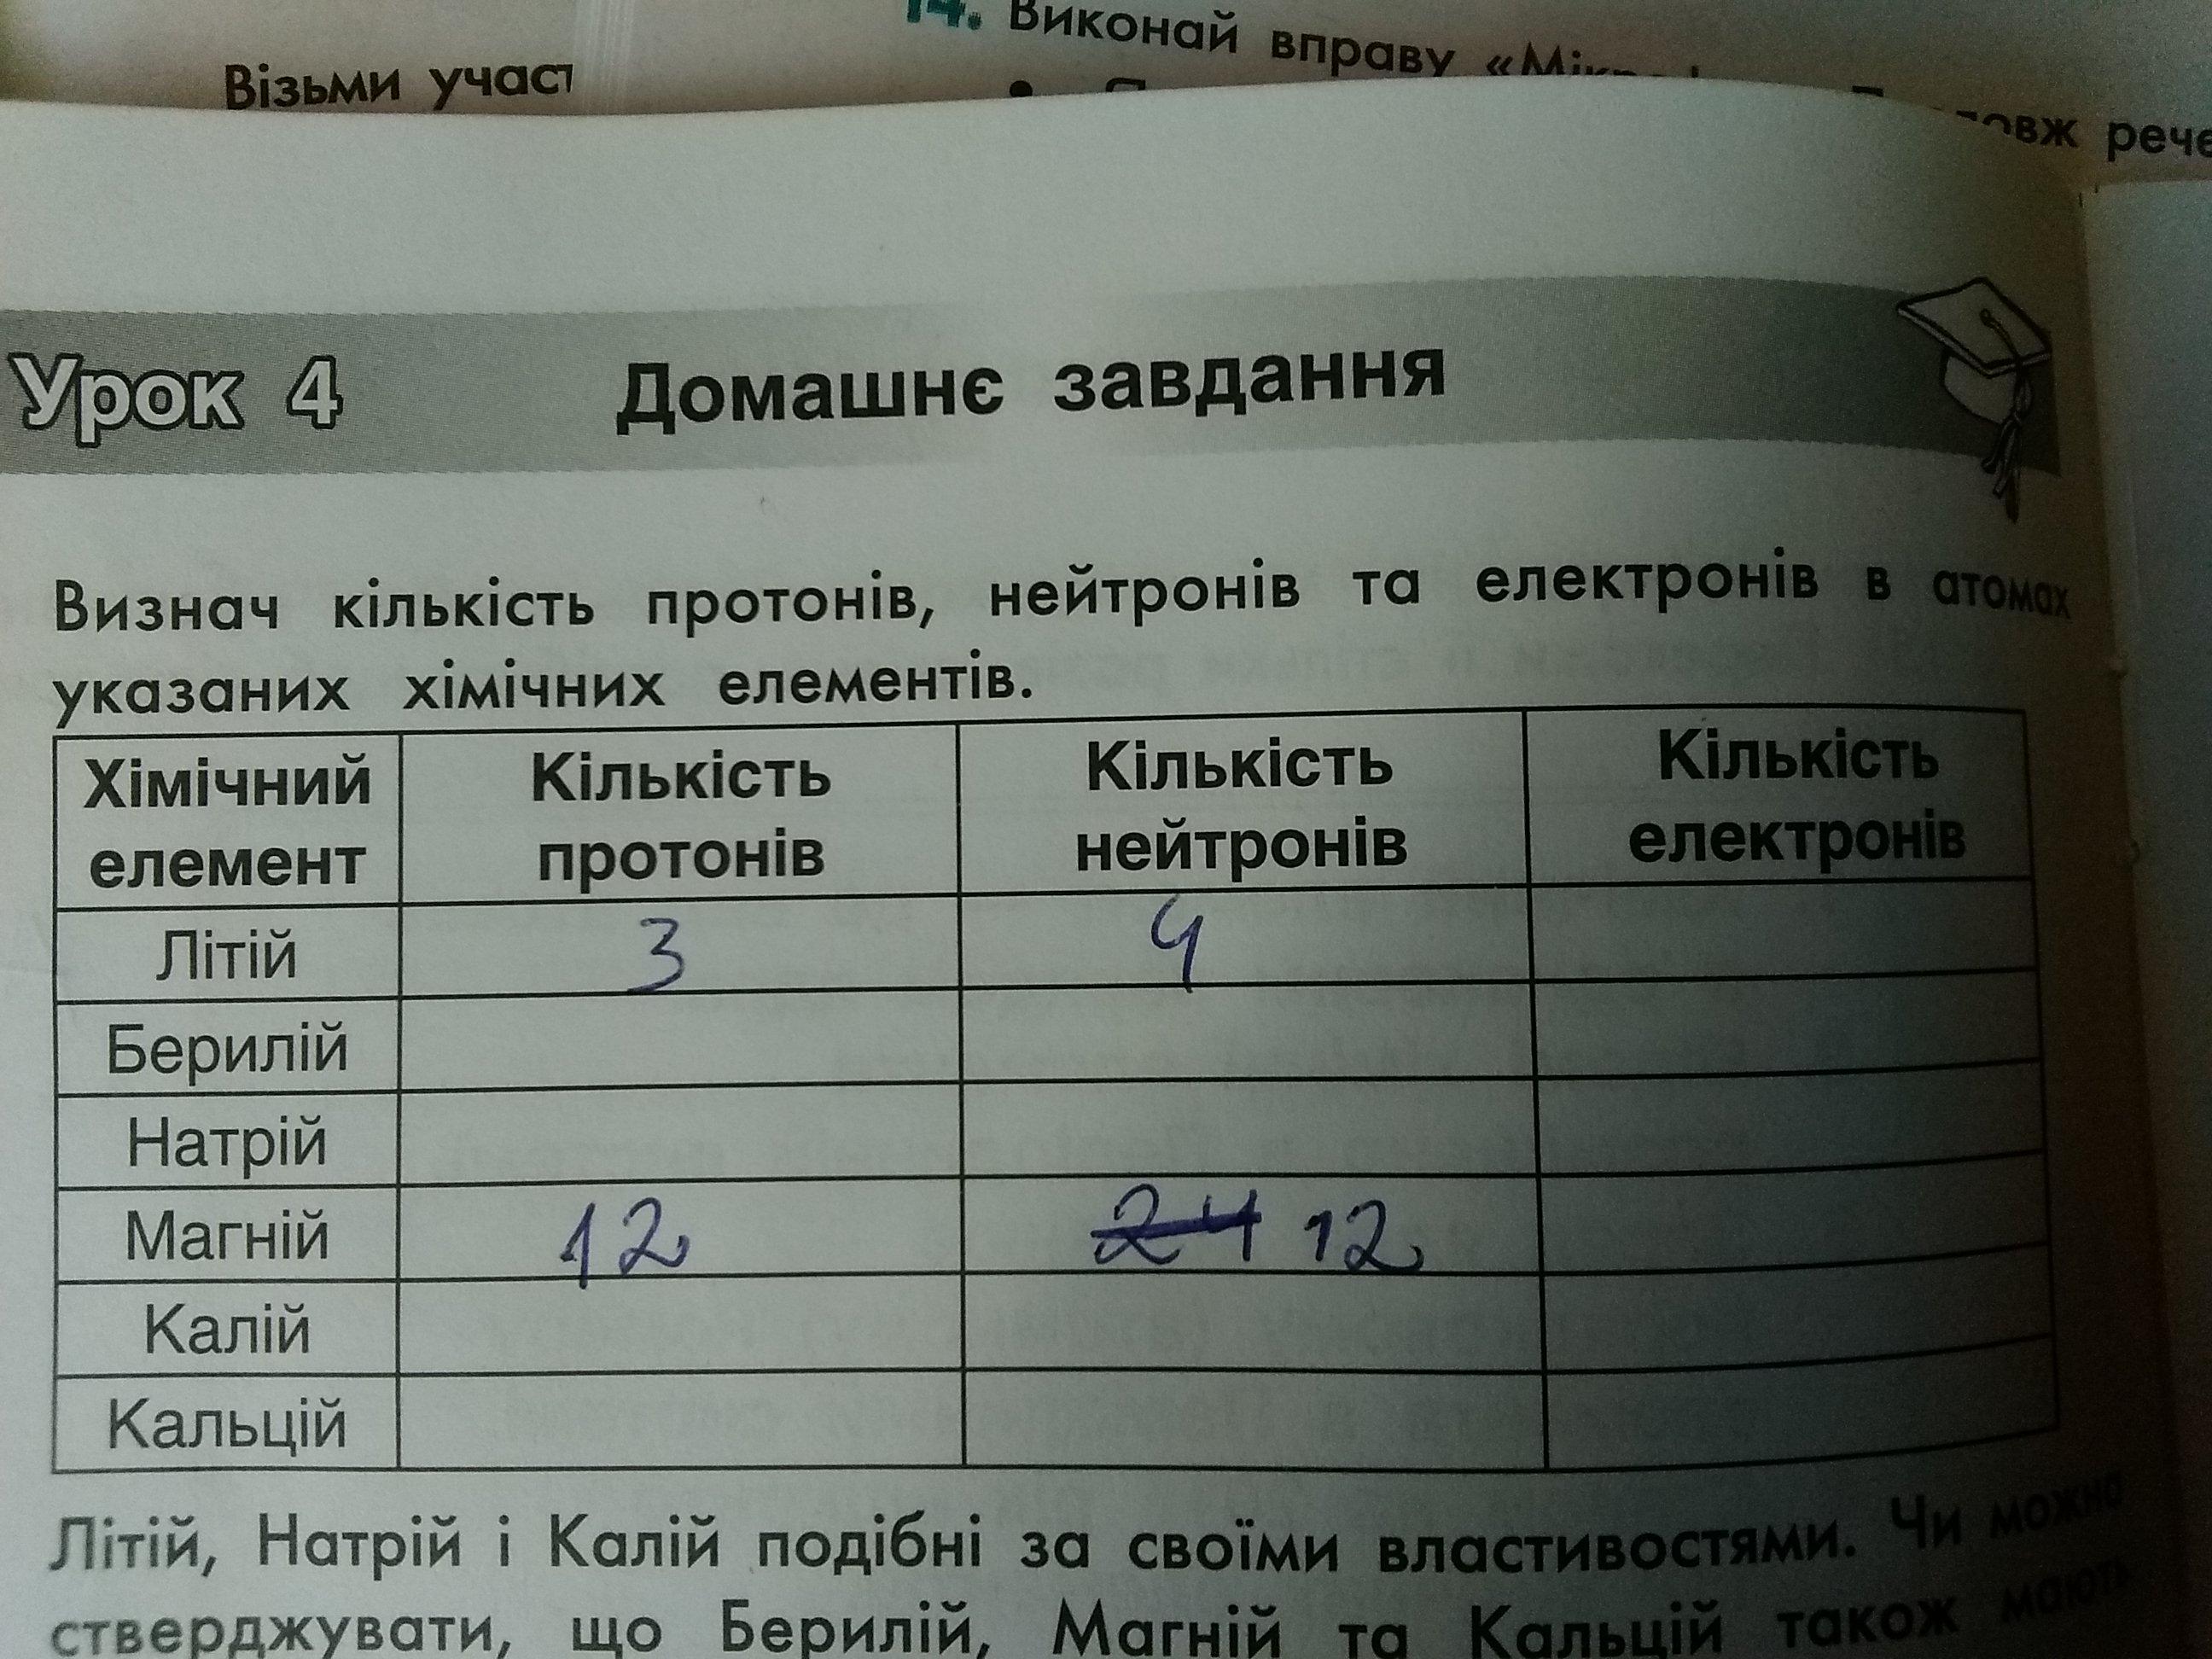 14. Виконай вправу
Візьми
рече
Урок 4 Домашнє завдання
Визнач кількість протонів, нейтронів та електронів в атомах
указаних хімічних елементів.
Хімічний елемент Кількість протонів Кількість нейтронів Кількість електронів
Літій 3 4
Берилій
Натрій
Магній 12 24 12
Калій
Кальцій
Літій, Натрій і Калій подібні за своїми властивостями. Чи можна
стверджувати, що Берилій, Магній та Кальцій також мають